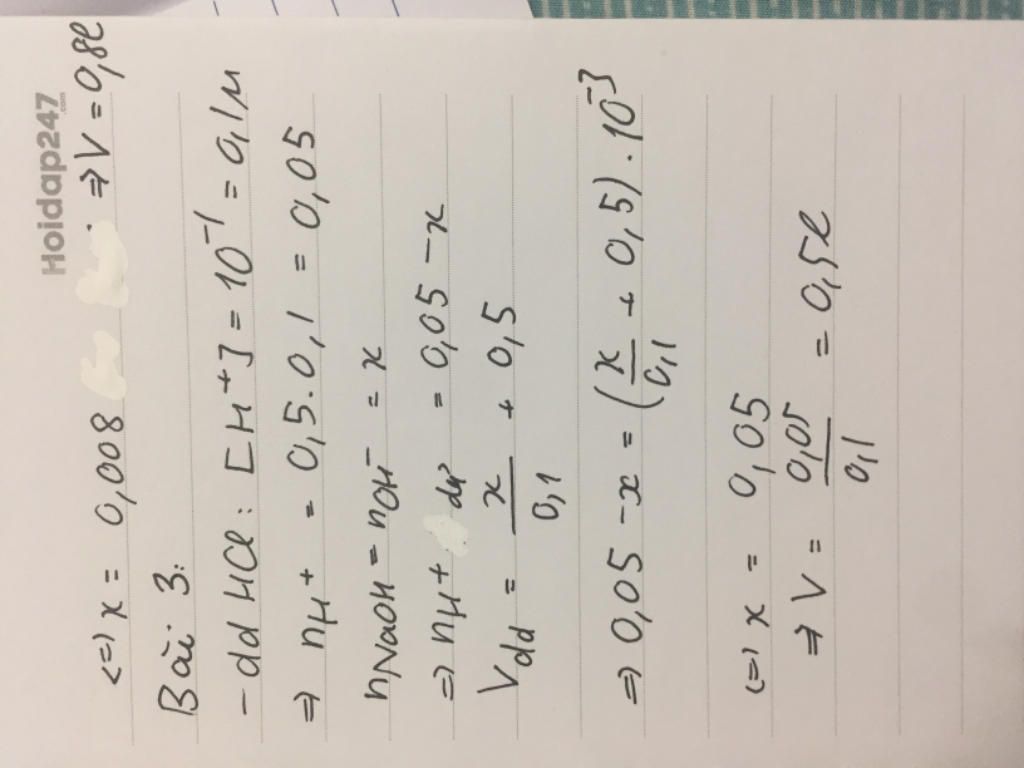 Hoidap247
.com
<=> x = 0,008 ⇒ V = 0,8l
Bài 3:
- dd HCl: [H⁺] = 10⁻¹ = 0,1M
⇒ nH⁺ = 0,5.0,1 = 0,05
nNaOH = nOH⁻ = x
⇒ nH⁺ dư = 0,05 - x
Vdd = x/0,1 + 0,5
⇒ 0,05 - x = (x/0,1 + 0,5).10⁻³
<=> x = 0,05
⇒ V = 0,05/0,1 = 0,5l